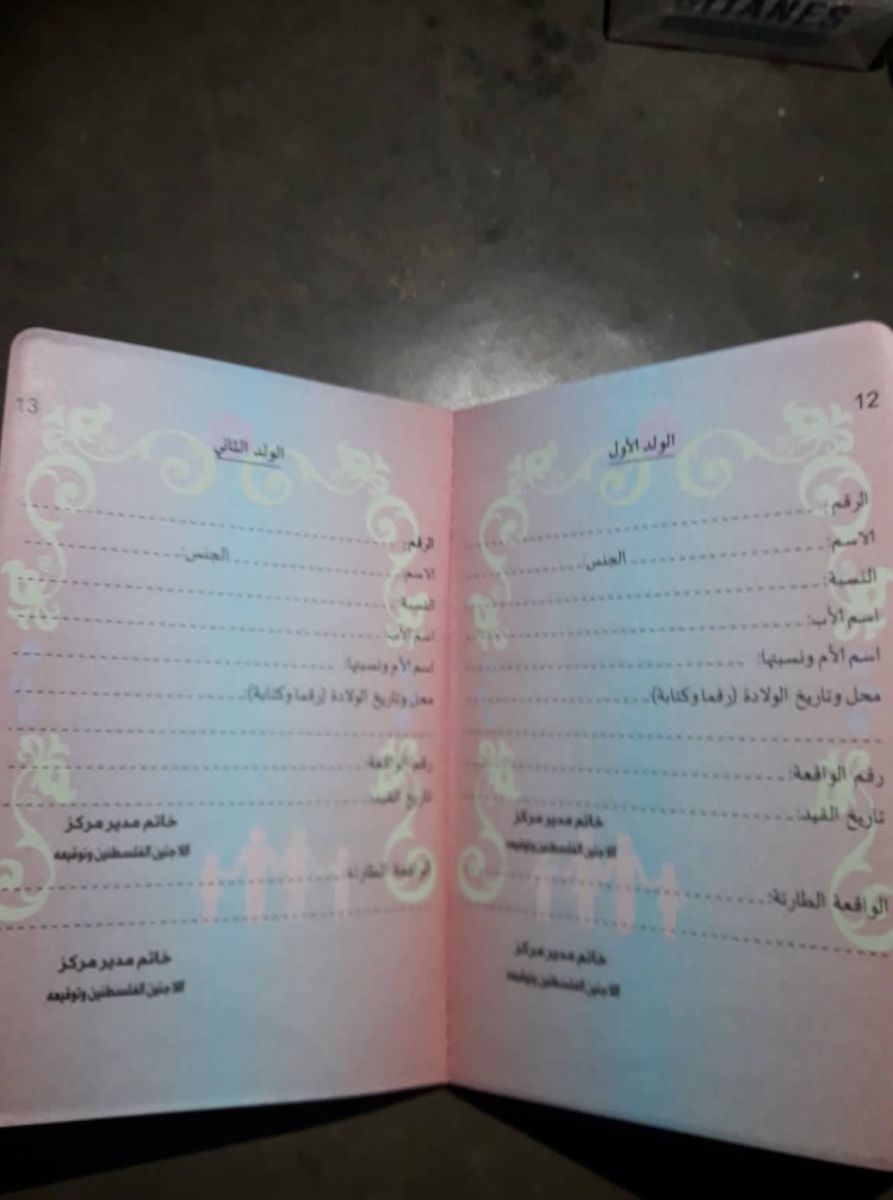 GITANES
12
الولد الأول
الرقم:
الاسم: الجنس:
النسبة:
اسم الأب:
اسم الأم ونسبتها:
محل وتاريخ الولادة (رقما وكتابة):
رقم الواقعة:
تاريخ القيد:
خاتم مدير مركز
اللاجئين الفلسطنين وتوقيعه
الواقعة الطارئة:
خاتم مدير مركز
اللاجئين الفلسطنين وتوقيعه
13
الولد الثاني
الرقم:
الاسم: الجنس:
النسبة:
اسم الأب:
اسم الأم ونسبتها:
محل وتاريخ الولادة (رقما وكتابة):
رقم الواقعة:
تاريخ القيد:
خاتم مدير مركز
اللاجئين الفلسطنين وتوقيعه
الواقعة الطارئة:
خاتم مدير مركز
اللاجئين الفلسطنين وتوقيعه